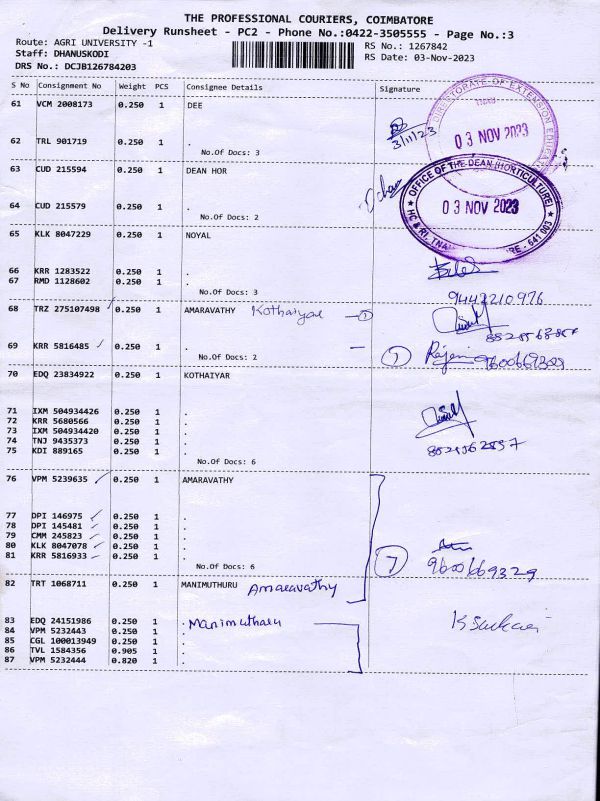 THE PROFESSIONAL COURIERS, COIMBATORE
Delivery Runsheet - PC2 - Phone No.:0422-3505555 - Page No.:3
Route: AGRI UNIVERSITY -1 RS No.: 1267842
Staff: DHANUSKODI RS Date: 03-Nov-2023
DRS No.: DCJB126784203
S No Consignment No Weight PCS Consignee Details Signature
61 VCM 2008173 0.250 1 DEE
DIRECTORATE OF EXTENSION EDUCATION
03 NOV 2023
3/11/23
62 TRL 901719 0.250 1 .
No.Of Docs: 3
63 CUD 215594 0.250 1 DEAN HOR
OFFICE OF THE DEAN (HORTICULTURE)
03 NOV 2023
HC & RI, TNAU - 641 003
64 CUD 215579 0.250 1 .
No.Of Docs: 2
65 KLK 8047229 0.250 1 NOYAL
66 KRR 1283522 0.250 1 .
67 RMD 1128602 0.250 1 .
No.Of Docs: 3
9442210976
68 TRZ 275107498 0.250 1 AMARAVATHY Kothaiyar — 1
69 KRR 5816485 0.250 1 .
No.Of Docs: 2
— 1 9600669329
70 EDQ 23834922 0.250 1 KOTHAIYAR
71 IXM 504934426 0.250 1 .
72 KRR 5680566 0.250 1 .
73 IXM 504934420 0.250 1 .
74 TNJ 9435373 0.250 1 .
75 KDI 889165 0.250 1 .
No.Of Docs: 6
76 VPM 5239635 0.250 1 AMARAVATHY
77 DPI 146975 0.250 1 .
78 DPI 145481 0.250 1 .
79 CMM 245823 0.250 1 .
80 KLK 8047078 0.250 1 .
81 KRR 5816933 0.250 1 .
No.Of Docs: 6
7 9600669329
82 TRT 1068711 0.250 1 MANIMUTHURU Amaravathy
83 EDQ 24151986 0.250 1 . Manimutharu
84 VPM 5232443 0.250 1 .
85 CGL 100013949 0.250 1 .
86 TVL 1584356 0.905 1 .
87 VPM 5232444 0.820 1 .